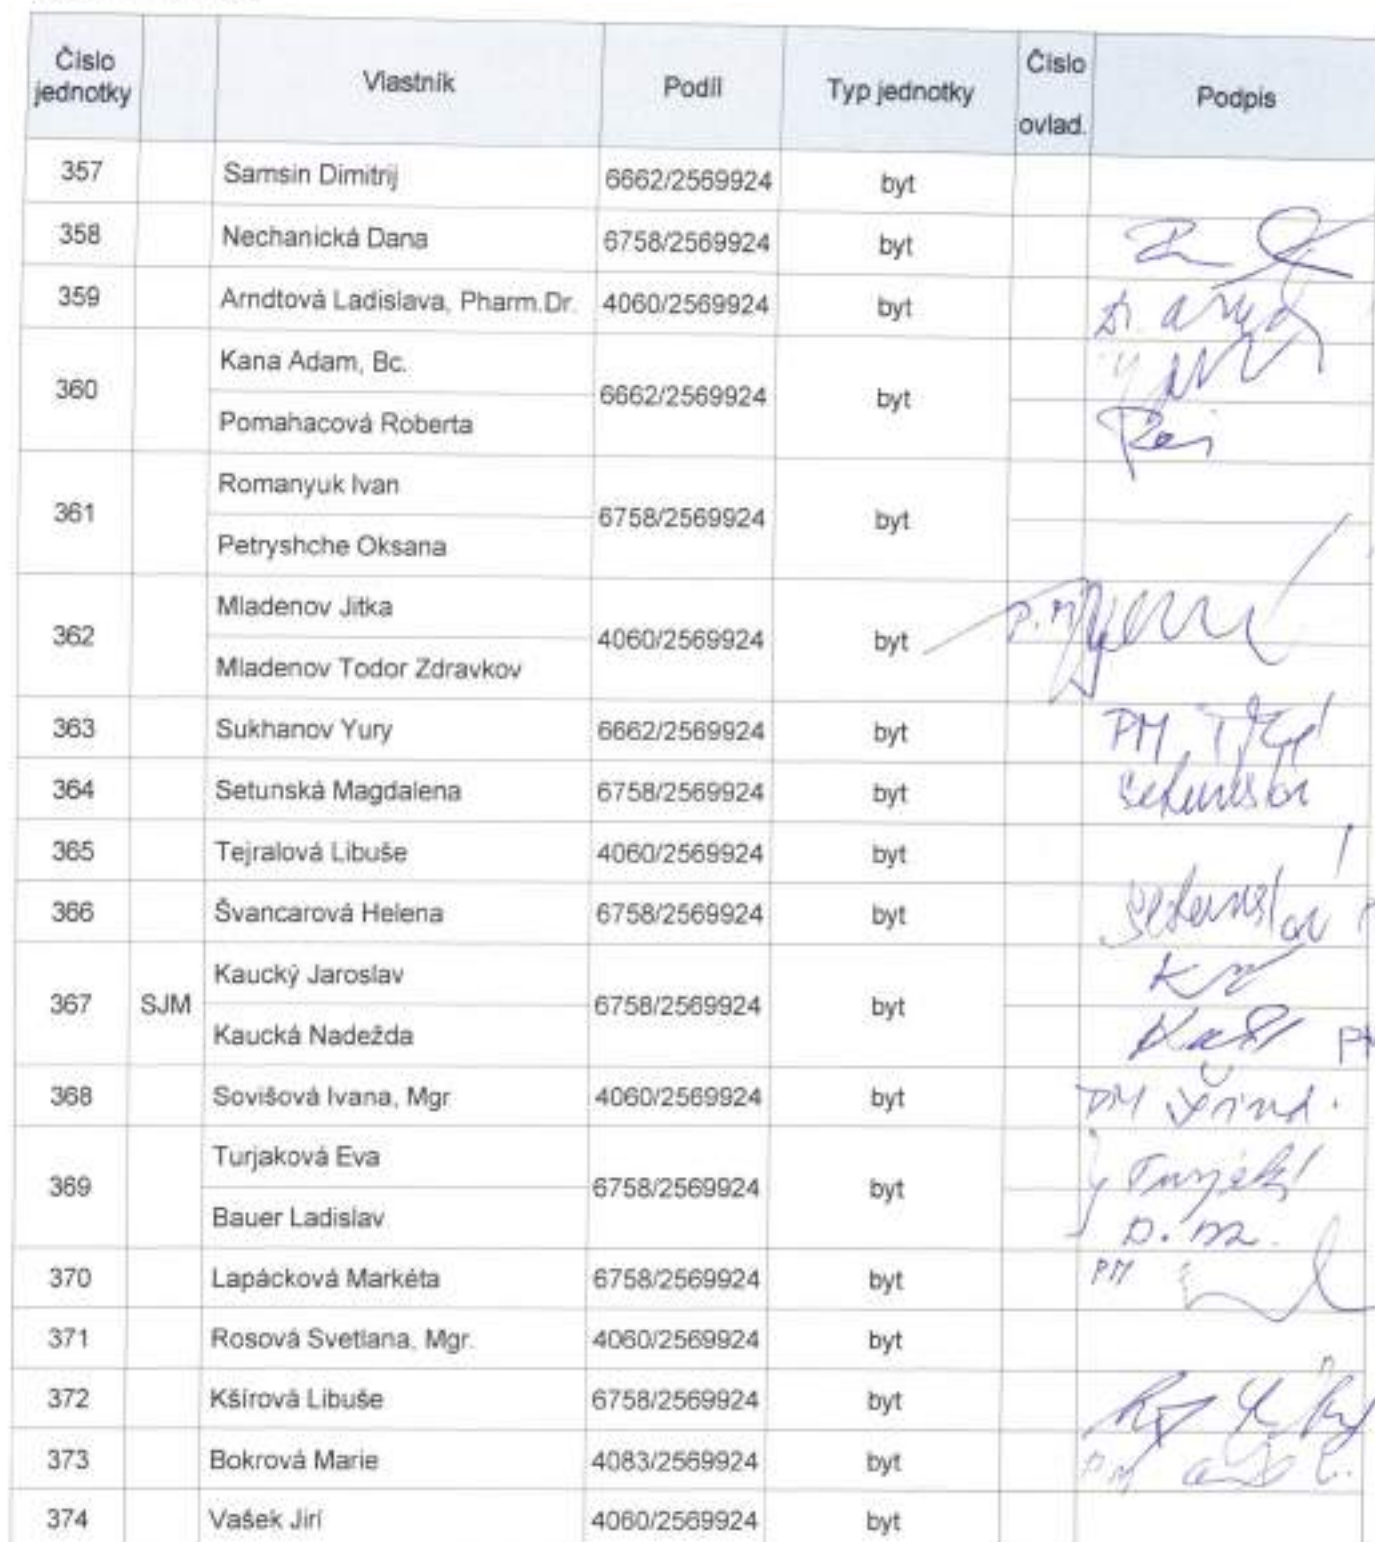 Číslo jednotky Vlastník Podíl Typ jednotky Číslo ovlad. Podpis
357 Samsin Dimitrij 6662/2569924 byt
358 Nechanická Dana 6758/2569924 byt
359 Arndtová Ladislava, Pharm.Dr. 4060/2569924 byt
360 Kana Adam, Bc. 6662/2569924 byt
Pomahacová Roberta
361 Romanyuk Ivan 6758/2569924 byt
Petryshche Oksana
362 Mladenov Jitka 4060/2569924 byt P.M
Mladenov Todor Zdravkov
363 Sukhanov Yury 6662/2569924 byt PM
364 Setunská Magdalena 6758/2569924 byt
365 Tejralová Libuše 4060/2569924 byt
366 Švancarová Helena 6758/2569924 byt
367 SJM Kaucký Jaroslav 6758/2569924 byt
Kaucká Nadežda
368 Sovišová Ivana, Mgr 4060/2569924 byt PM
369 Turjaková Eva 6758/2569924 byt
Bauer Ladislav p.m.
370 Lapácková Markéta 6758/2569924 byt PM
371 Rosová Svetlana, Mgr. 4060/2569924 byt
372 Kšírová Libuše 6758/2569924 byt
373 Bokrová Marie 4083/2569924 byt PM
374 Vašek Jirí 4060/2569924 byt